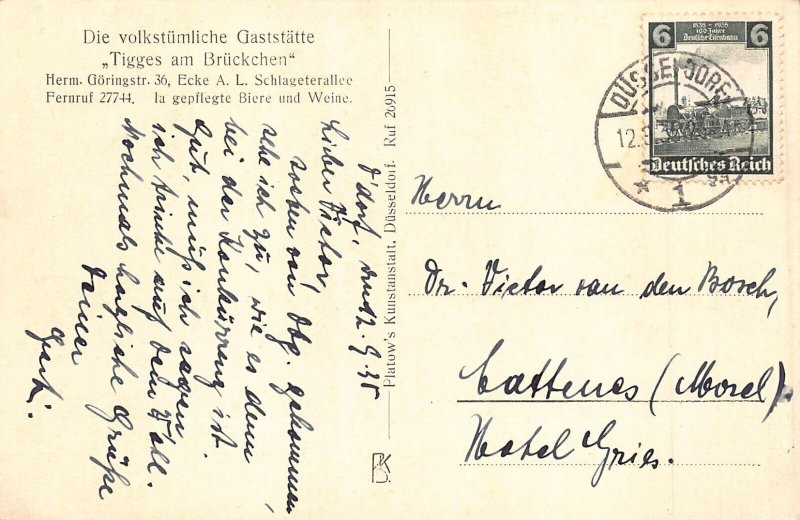 Die volkstümliche Gaststätte
„Tigges am Brückchen"
Herm. Göringstr. 36, Ecke A. L. Schlageterallee
Fernruf 27744. Ia gepflegte Biere und Weine.
D'dorf, den 12.9.35
Lieber Victor,
soeben von Obg. gekommen,
sehe ich zu, wie es dem
bei der Konkurrenz ist.
Gut, muß ich sagen
ich trinke auf dein Wohl.
Nochmals herzliche Grüße
Deiner
Platow's Kunstanstalt, Düsseldorf. Ruf 26915
BK
6 1835-1935 6
100 Jahre
Deutsche Eisenbahn
Deutsches Reich
DÜSSELDORF
1
Herrn
Dr. Victor van den Bosch,
Cattenes (Mosel).
Hotel Gries.